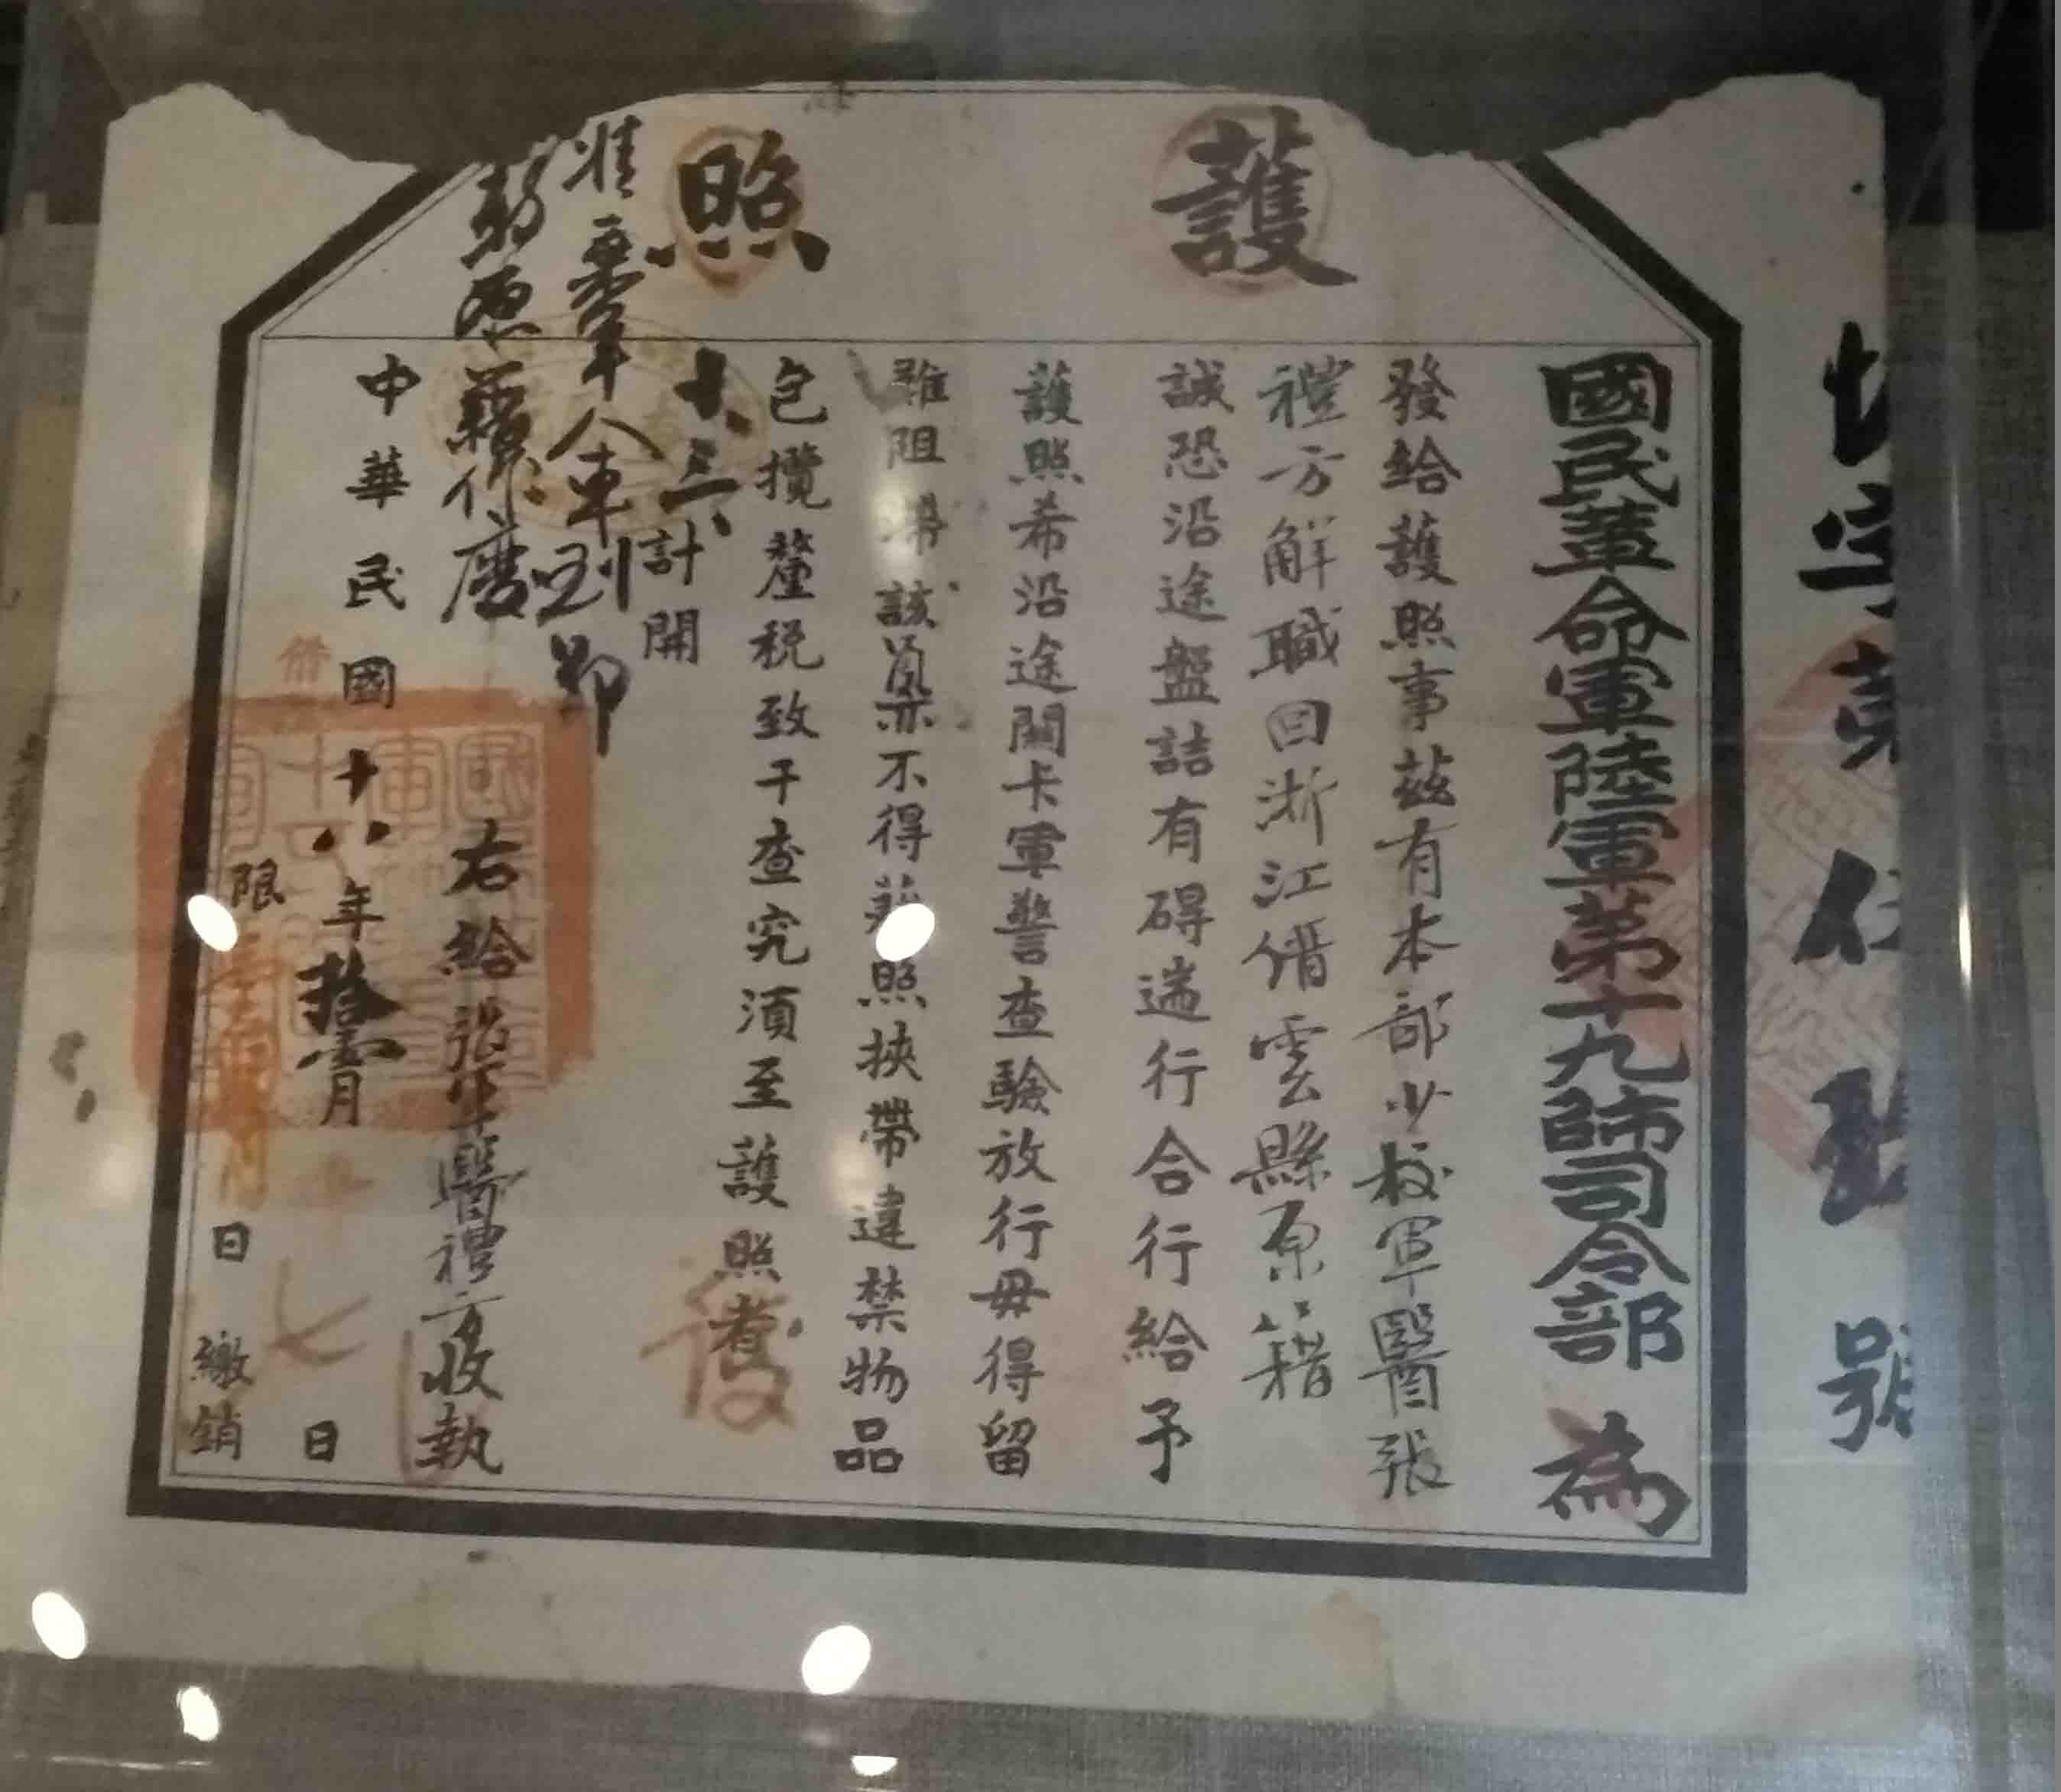 護照
國民革命軍陸軍第十九師司令部 為
發給護照事茲有本部少校軍醫張
禮方解職回浙江縉雲縣原籍
誠恐沿途盤詰有碍遄行合行給予
護照希沿途關卡軍警查驗放行毋得留
難阻 該員亦不得 照挾帶違禁物品
包攬釐稅致干查究須至護照者
計開
十三
乘軍人車到
右給張軍醫禮方收執
中華民國十八年拾壹月 七 日
限 日繳銷